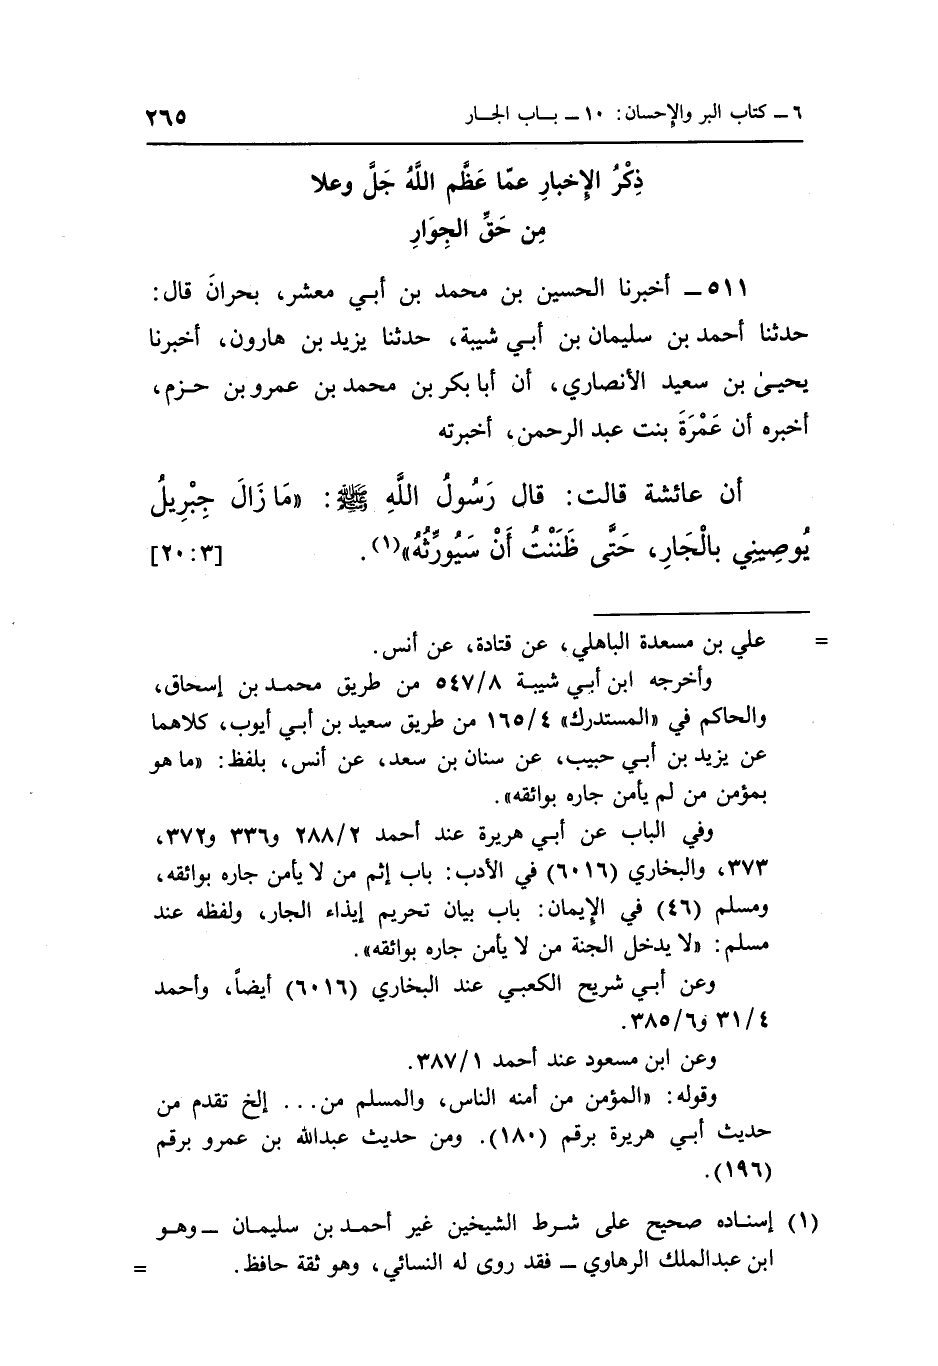 ٦ ــ كتاب البر والإحسان: ١٠ ــ بــاب الجـار ٢٦٥
ذِكْرُ الإِخبارِ عمّا عَظَّم اللَّهُ جَلَّ وعلا
مِن حَقِّ الجِوَارِ
٥١١ ــ أخبرنا الحسين بن محمد بن أبي معشر، بحرانَ قال:
حدثنا أحمد بن سليمان بن أبي شيبة، حدثنا يزيد بن هارون، أخبرنا
يحيىٰ بن سعيد الأنصاري، أن أبا بكر بن محمد بن عمرو بن حـزم،
أخبره أن عَمْرَةَ بنت عبد الرحمن، أخبرته
أن عائشة قالت: قال رَسُولُ اللَّهِ ﷺ: «مَا زَالَ جِبْرِيلُ
يُوصِينِي بالْجَارِ، حَتَّى ظَنَنْتُ أَنْ سَيُورِّثُهُ»(١). [٣: ٢٠]
= علي بن مسعدة الباهلي، عن قتادة، عن أنس.
وأخرجه ابن أبي شيبة ٥٤٧/٨ من طريق محمـد بن إسحاق،
والحاكم في «المستدرك» ١٦٥/٤ من طريق سعيد بن أبي أيوب، كلاهما
عن يزيد بن أبي حبيب، عن سنان بن سعد، عن أنس، بلفظ: «ما هو
بمؤمن من لم يأمن جاره بوائقه».
وفي الباب عن أبي هريرة عند أحمد ٢٨٨/٢ و٣٣٦ و٣٧٢،
٣٧٣، والبخاري (٦٠١٦) في الأدب: باب إثم من لا يأمن جاره بوائقه،
ومسلم (٤٦) في الإيمان: باب بيان تحريم إيذاء الجار، ولفظه عند
مسلم: «لا يدخل الجنة من لا يأمن جاره بوائقه».
وعن أبي شريح الكعبي عند البخاري (٦٠١٦) أيضاً، وأحمد
٣١/٤ و٣٨٥/٦.
وعن ابن مسعود عند أحمد ٣٨٧/١.
وقوله: «المؤمن من أمنه الناس، والمسلم من... إلخ تقدم من
حديث أبي هريرة برقم (١٨٠). ومن حديث عبدالله بن عمرو برقم
(١٩٦).
(١) إسنـاده صحيح على شـرط الشيخين غير أحمـد بن سليمان ــ وهـو
ابن عبدالملك الرهاوي ــ فقد روى له النسائي، وهو ثقة حافظ. =